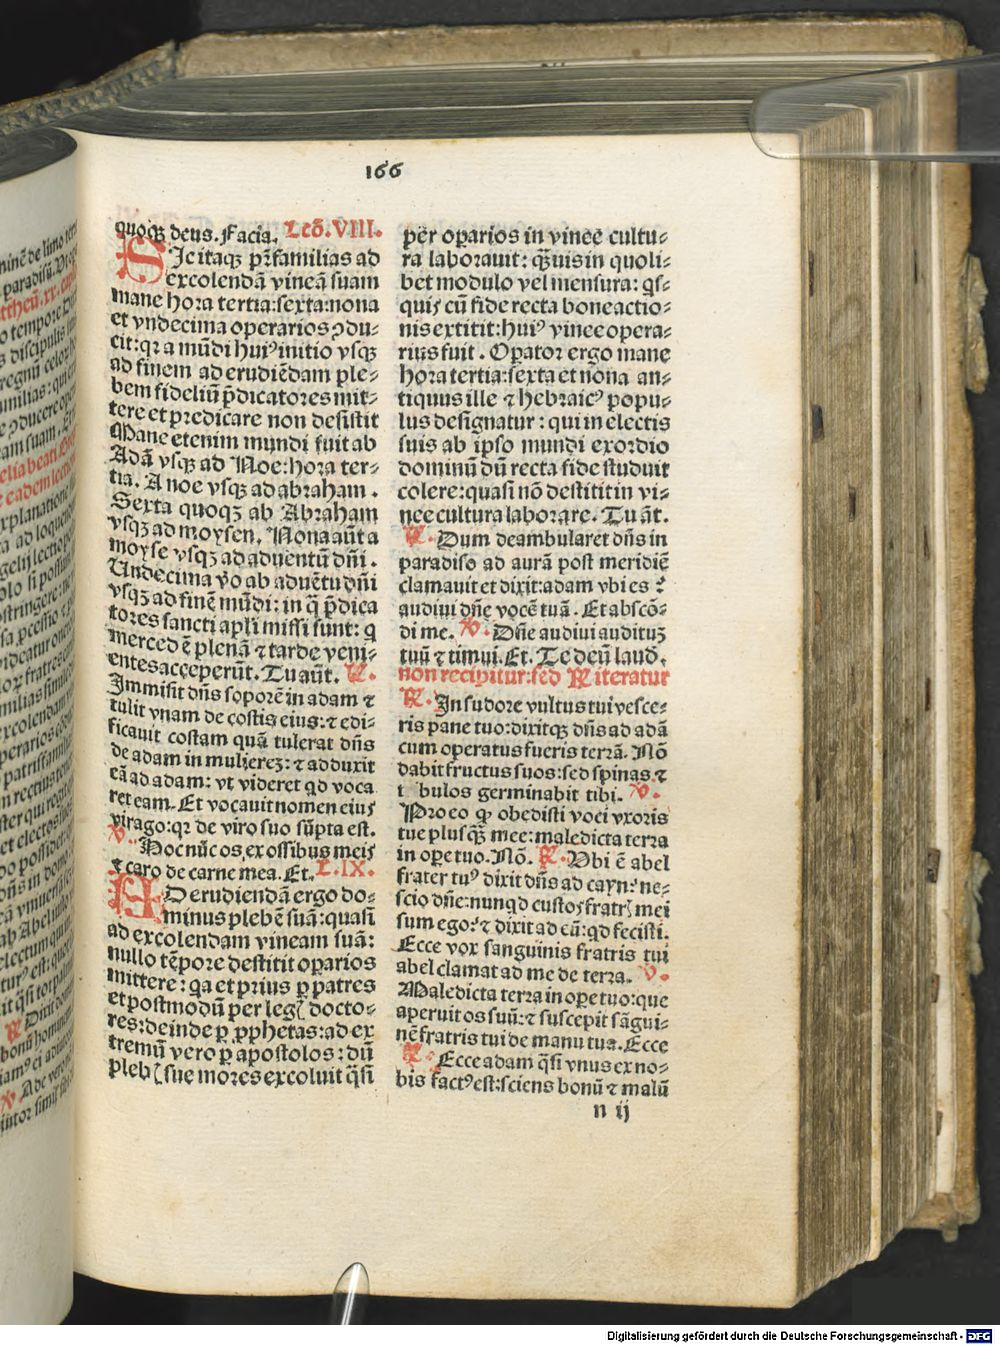 166
quoqꝫ deus. Facia. Lcō. VIII.
SIc itaqꝫ pr̄familias ad
excolendā vineā suam
mane hora tertia:sexta:nona
et vndecima operarios ꝯdu⸗
cit:qꝛ a mūdi huiꝰ initio vsqꝫ
ad finem ad erudiēdam ple⸗
bem fideliū p̄dicatores mit⸗
tere et predicare non desistit
Mane etenim mundi fuit ab
Adā vsqꝫ ad Noe:hora ter⸗
tia. A noe vsqꝫ ad abraham.
Sexta quoqꝫ ab Abraham
vsqꝫ ad moysen. Nona aūt a
moyse vsqꝫ ad aduentū dn̄i.
Undecima v̊o ab aduētu dn̄i
vsqꝫ ad finē mūdi: in q̄ p̄dica
tores sancti apl̄i missi sunt: q
mercedē plenā ⁊ tarde veni⸗
entes acceperūt. Tu aūt. R̄.
Immisit dn̄s soporē in adam ⁊
tulit vnam de costis eius:⁊ edi⸗
ficauit costam quā tulerat dn̄s
de adam in mulierez: ⁊ adduxit
eā ad adam: vt videret qd voca
ret eam. Et vocauit nomen eiuſ
virago:qꝛ de viro suo sūpta est.
V̄. Hoc nūc os, ex ossibus meiſ
⁊ caro de carne mea. Et. L. IX.
AD erudiendā ergo do⸗
minus plebē suā:quasi
ad excolendam vineam suā:
nullo tēpore destitit oꝑarios
mittere: qa et prius ꝑ patres
et postmodū per legꝭ docto⸗
res:deinde ꝑ ꝓphetas:ad ex
tremū vero ꝑ apostolos: dū
plebꝭ sue mores excoluit q̄si
pēr oparios in vinee cultu⸗
ra laborauit: q̄uis in quoli⸗
bet modulo vel mensura: qs⸗
quiſ cū fide recta bone actio⸗
nis extitit:huiꝰ vinee opera⸗
rius fuit. Oꝑator ergo mane
hora tertia:sexta et nona an⸗
tiquus ille ⁊ hebraicꝰ popu⸗
lus designatur: qui in electis
suis ab ipso mundi exordio
dominū dū recta fide studuit
colere:quasi nō destitit in vi⸗
nee cultura laborare. Tu āt.
R̄. Dum deambularet dn̄s in
paradiso ad aurā post meridiē
clamauit et dixit:adam vbi es?
audiui dn̄e vocē tuā. Et abscō⸗
di me. V̄. Dn̄e audiui audituꝫ
tuū ⁊ timui. Et. Te deū laud.
non recipitur:sed R̄ iteratur
R̄. In sudore vultus tui vesce⸗
ris pane tuo:dixitqꝫ dn̄s ad adā
cum operatus fueris terrā. Nō
dabit fructus suos:sed spinas ⁊
t bulos germinabit tibi. V̄.
Pro eo ꝙ obedisti voci vxoris
tue plusq̄ mee:maledicta terra
in oꝑe tuo. Nō. R̄. Vbi ē abel
frater tuꝰ dixit dn̄s ad cayn: ne⸗
scio dn̄e:nunqd custoſ fratrꝭ mei
sum ego? ⁊ dixit ad eū:qd fecisti.
Ecce vox sanguinis fratris tui
abel clamat ad me de terra. V.
Maledicta terra in oꝑe tuo:que
aperuit os suū:⁊ suscepit sāgui⸗
nē fratris tui de manu tua. Ecce
R̄. Ecce adam q̄si vnus ex no⸗
bis factꝰ est:sciens bonū ⁊ malū
n ij
Digitalisierung gefördert durch die Deutsche Forschungsgemeinschaft - DFG